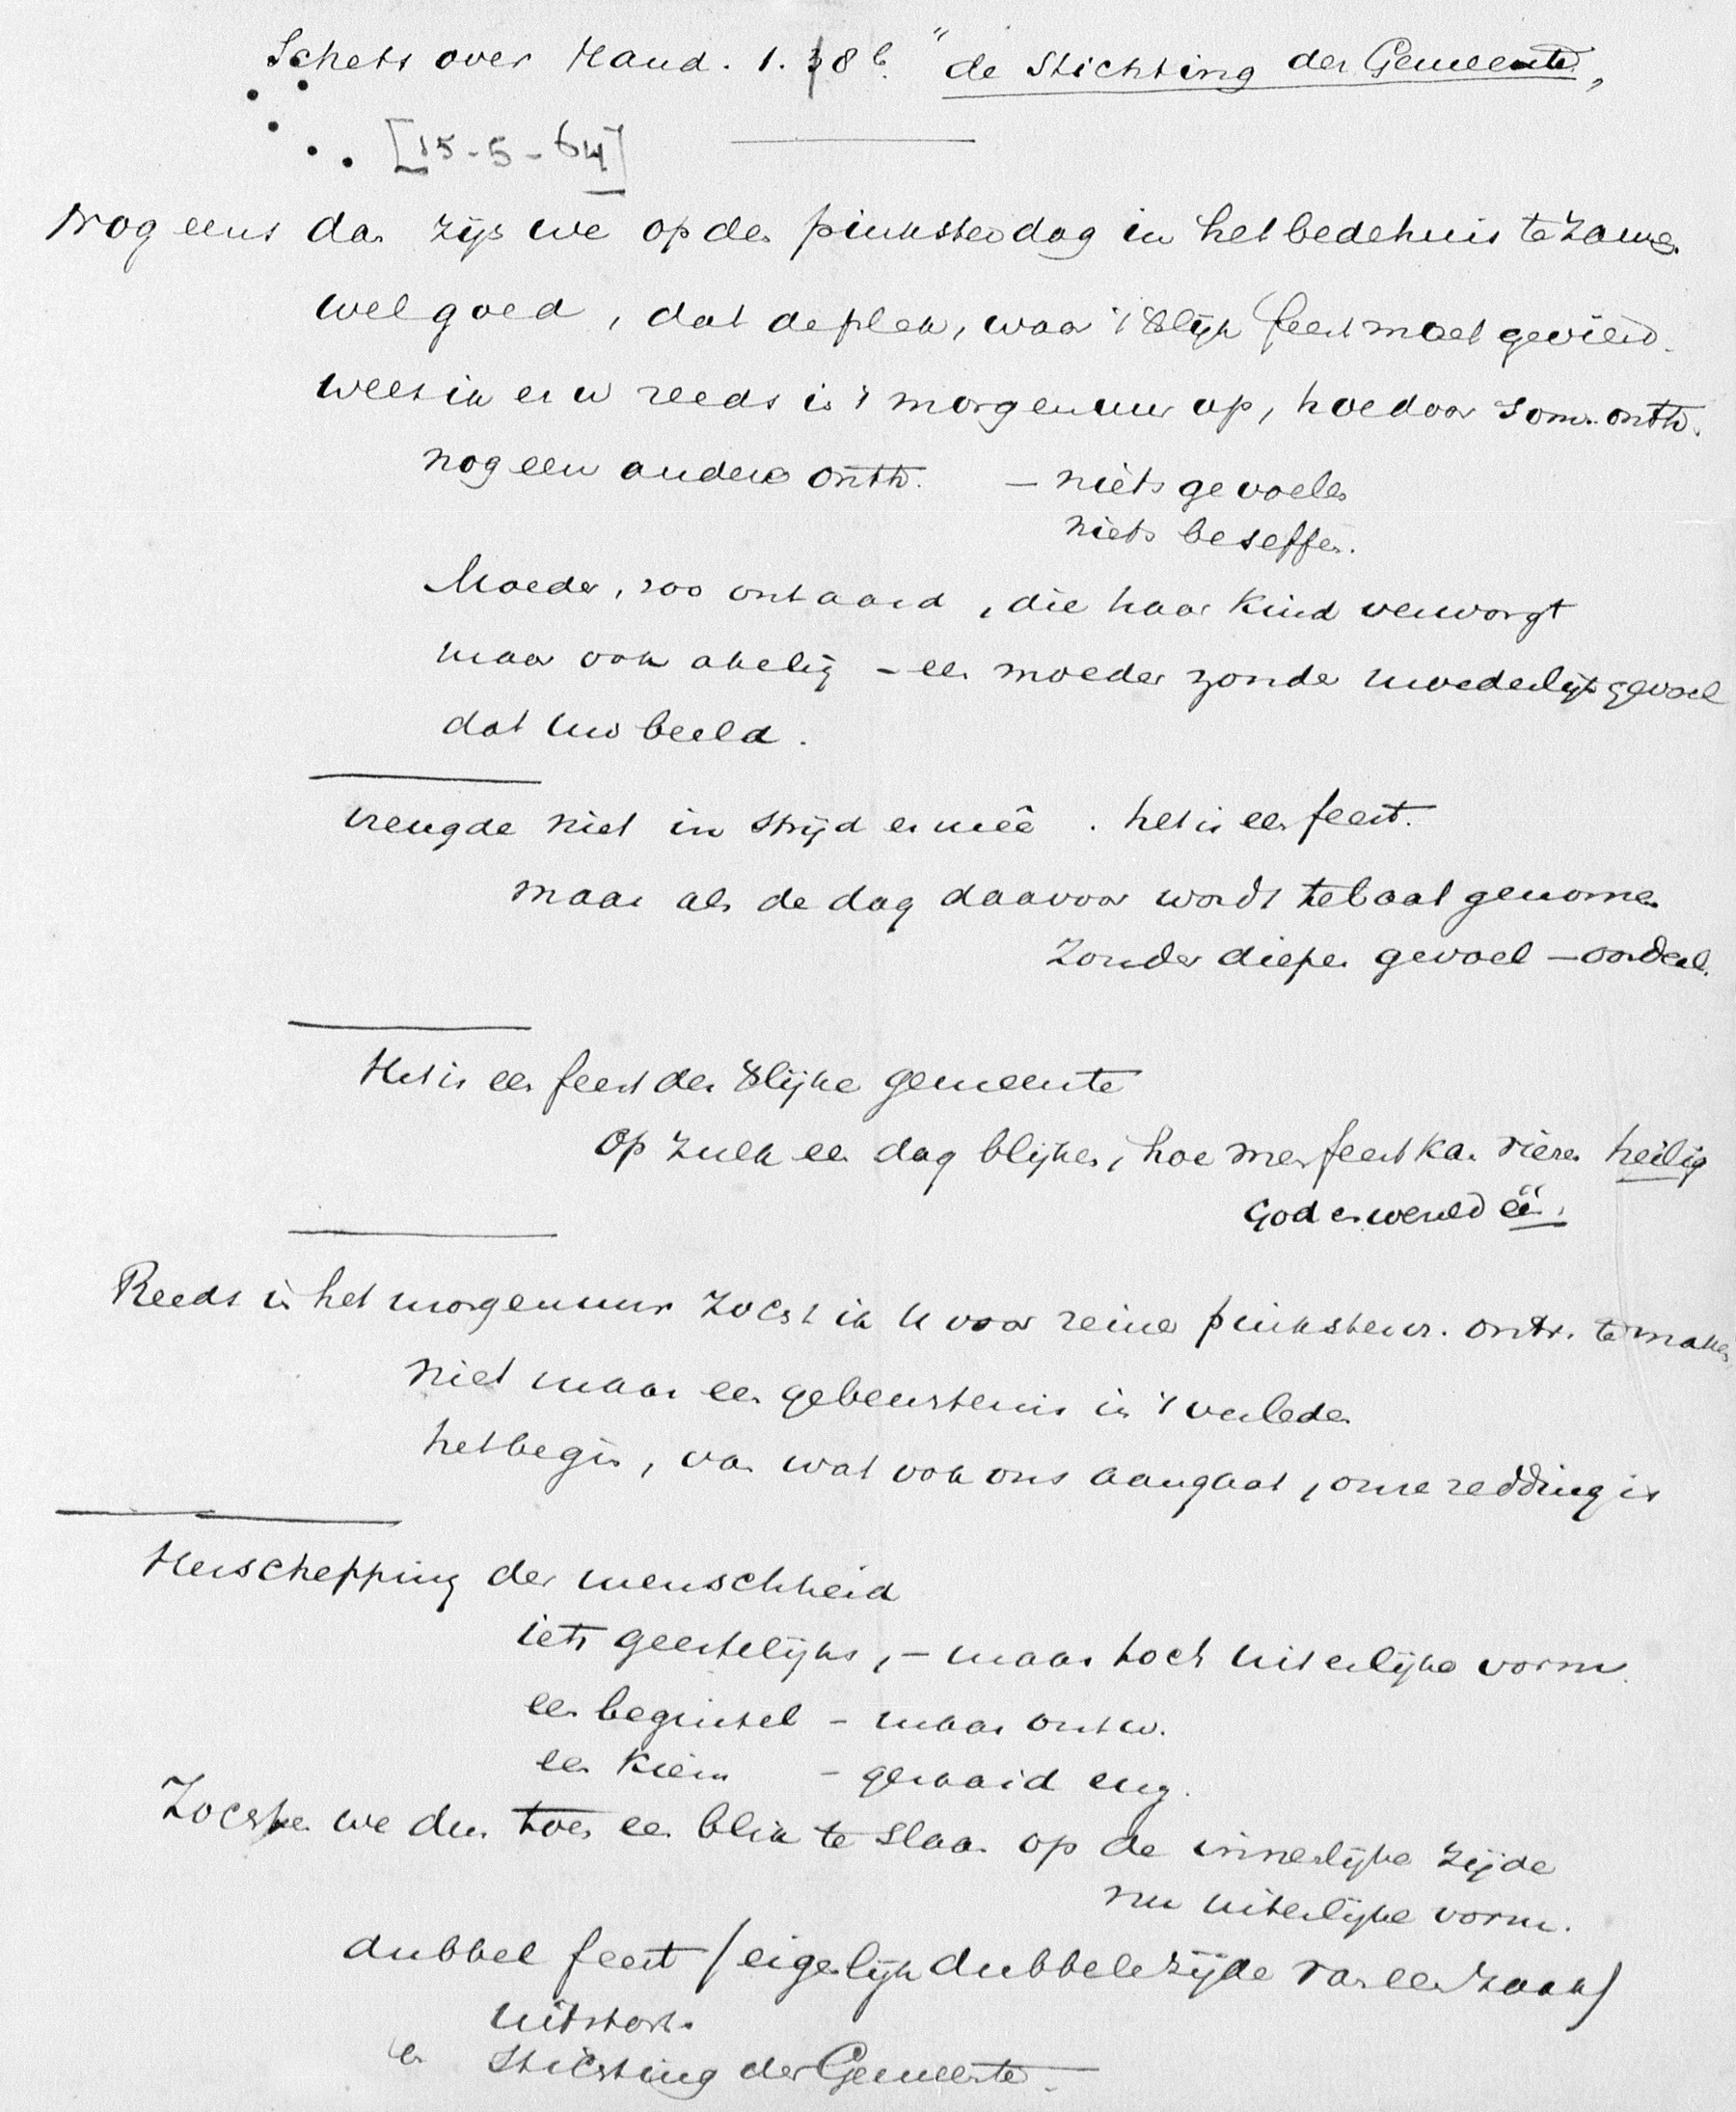 Schets over Hand. 1. 8b. "de Stichting der Gemeente"
[15-5-64]
Nog eens dan zijn we op den pinksterdag in het bedehuis te zamen
wel goed, dat de plek, waar 't Xlijk feest moet gevierd.
wees ik er u reeds in 't morgenuur op, hoe door som. onth.
nog een andere onth. — niets gevoelen
niets beseffen.
Moeder, zoo ontaard, die haar kind verworgt
maar ook akelig – een moeder zonder moederlijk gevoel
dat uw beeld.
vreugde niet in strijd er meê. het is een feest.
maar als de dag daarvoor wordt te baat genomen
Zonder dieper gevoel — oordeel.
Het is een feest der Xlijke gemeente
Op zulk een dag blijken, hoe men feest kan vieren heilig
God en wereld één.
Reeds in het morgenuur zocht ik u voor reine pinksterv. ontv. te maken
niet maar een gebeurtenis in 't verleden
het begin, van wat ook ons aangaat, onze redding is
Herschepping der menschheid
iets geestelijks, – maar toch uiterlijke vorm.
een beginsel – maar ontw.
een kiem – gezaaid enz.
Zochten we dus toen een blik te slaan op de innerlijke zijde
nu uiterlijke vorm.
dubbel feest / eigenlijk dubbele zijde van een zaak /
uitstort.
en Stichting der Gemeente.